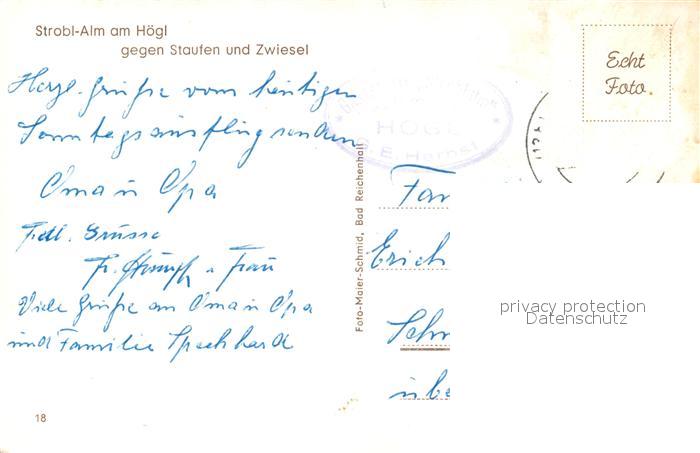 Strobl-Alm am Högl
gegen Staufen und Zwiesel
Herzl. Grüße vom heutigen
Sonntagsausflug senden
Oma u Opa
Frdl. Grüsse
Fr. u. Frau
Viele Grüße an Oma u Opa
und Familie Spechhard
18
Foto-Maier-Schmid, Bad Reichenhall
HÖGL
Echt
Foto.
Fam
Erich
Sch
privacy protection
Datenschutz